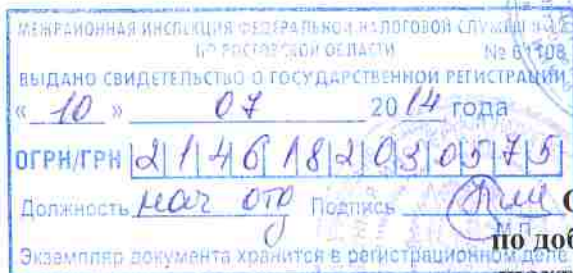 МЕЖРАЙОННАЯ ИНСПЕКЦИЯ ФЕДЕРАЛЬНОЙ НАЛОГОВОЙ СЛУЖБЫ
ПО РОСТОВСКОЙ ОБЛАСТИ № 61108
ВЫДАНО СВИДЕТЕЛЬСТВО О ГОСУДАРСТВЕННОЙ РЕГИСТРАЦИИ
« 10 » 07 2014 года
ОГРН/ГРН 2146182030575
Должность нач отд Подпись
М.П.
Экземпляр документа хранится в регистрационном деле
по доб